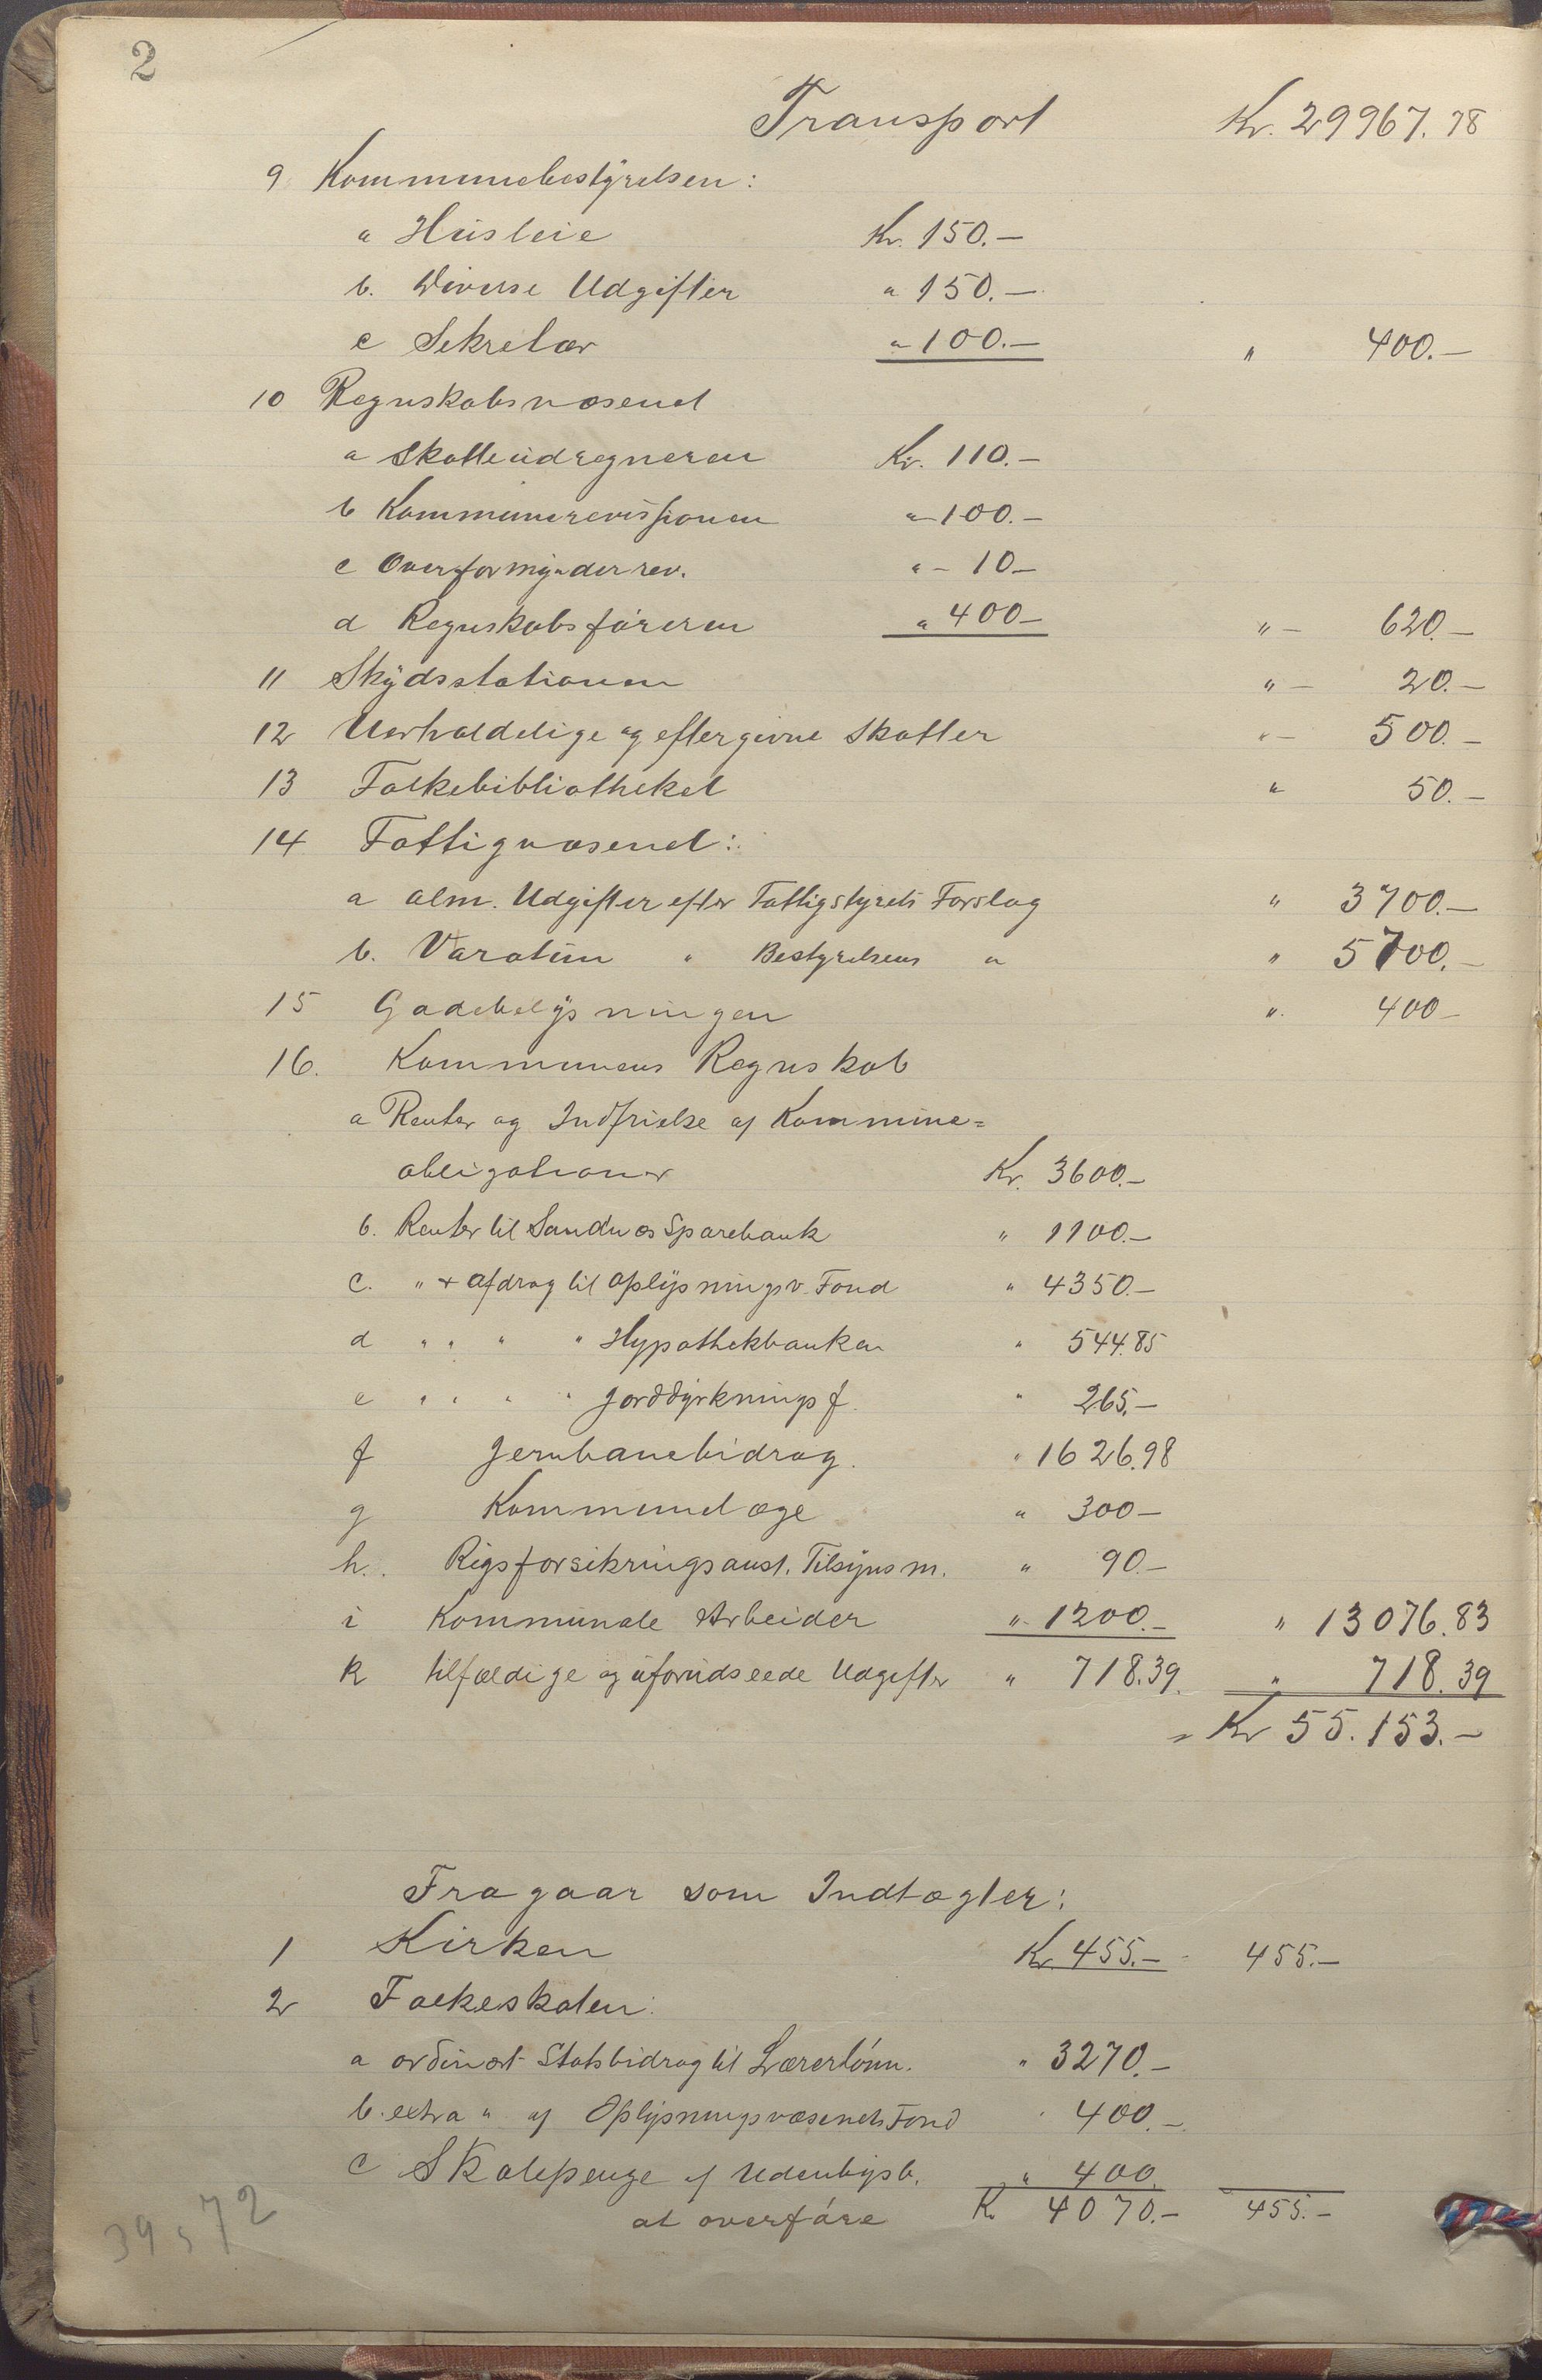 2
Transport Kr. 29967.78
9 Kommunebestyrelsen:
a Husleie Kr. 150.–
b. Diverse Udgifter " 150.–
c Sekretær " 100.– " 400.–
10 Regnskabsvæsenet
a Skatteudregneren Kr. 110.–
b Kommunerevisionen " 100.–
c Overformynderrev. " – 10–
d Regnskabsføreren " 400– " – 620.–
11 Skydsstationen " – 20.–
12 Uerholdelige og eftergivne Skatter " – 500.–
13 Folkebibliotheket " 50.–
14 Fattigvæsenet:
a alm. Udgifter efter Fattigstyrets Forslag " 3700.–
b. Varatun " Bestyrelsens " " 5700.–
15 Gadebelysningen " 400–
16. Kommunens Regnskab
a Renter og Indfrielse af Kommune=
obligationer Kr. 3600.–
b. Renter til Sandnes Sparebank " 1100.–
c. " + Afdrag til Oplysningsv. Fond " 4350.–
d " " " " Hypothekbanken " 544.85
e " " " " Jorddyrkningsf. " 265.–
f Jernbanebidrag. " 1626.98
g Kommunelæge " 300–
h. Rigsforsikringsanst. Tilsynsm. " 90.–
i Kommunale Arbeider " 1200.– " 13076.83
k tilfældige og uforudseede Udgifter " 718.39. " 718.39
= Kr 55.153.–
Fragaar som Indtægter:
1 Kirken Kr. 455.– 455.–
2 Folkeskolen:
a ordinært Statsbidrag til Lærerlønn. " 3270.–
b. extra " af Oplysningsvæsenets Fond " 400.–
c Skolepenge af Udenbysb. " 400.
at overføre Kr 4070.– 455.–
39572